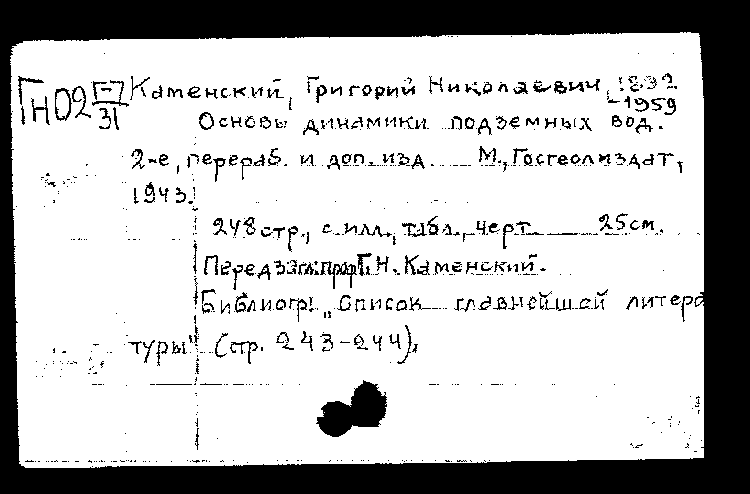 ГнО2 Г-7/31 Каменский, Григорий Николаевич, 1892
-1959
Основы динамики подземных вод.
2-е, перераб. и доп. изд. М., Госгеолиздат,
1943.
248 стр., с илл., табл., черт. 25 см.
Перед загл. проф. Г.Н. Каменский.
Библиогр: „Список главнейшей литера
туры" (стр. 243-244).